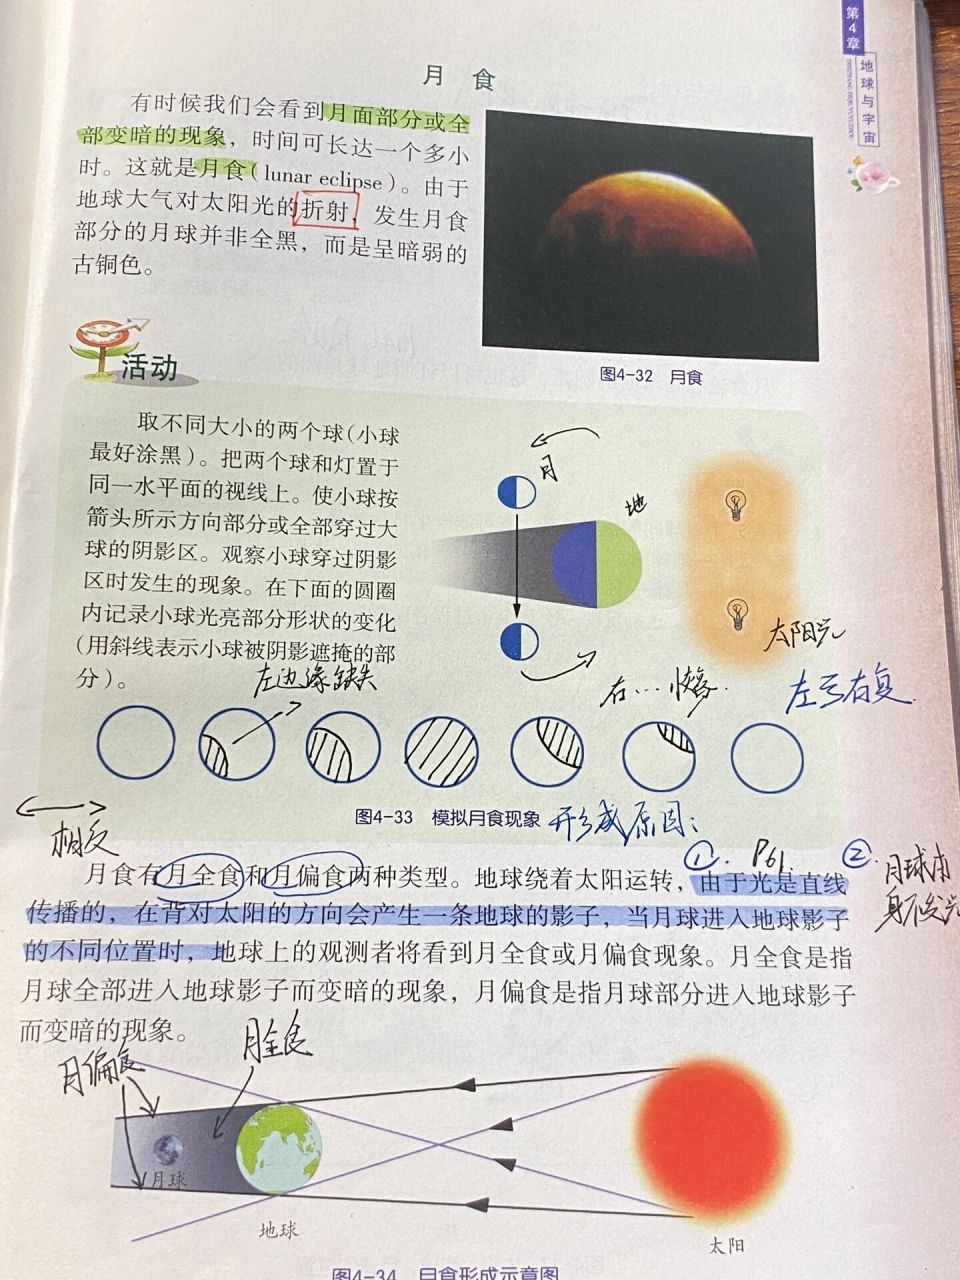 第4章
地球与宇宙
月 食
有时候我们会看到月面部分或全
部变暗的现象，时间可长达一个多小
时。这就是月食(lunar eclipse)。由于
地球大气对太阳光的折射，发生月食
部分的月球并非全黑，而是呈暗弱的
古铜色。
图4-32 月食
活动
取不同大小的两个球(小球
最好涂黑)。把两个球和灯置于
同一水平面的视线上。使小球按
箭头所示方向部分或全部穿过大
球的阴影区。观察小球穿过阴影
区时发生的现象。在下面的圆圈
内记录小球光亮部分形状的变化
(用斜线表示小球被阴影遮掩的部
分)。
月
地
太阳光
左边缘缺失
右…恢复.
左亏右复.
图4-33 模拟月食现象
形成原因:
相反
① . P61.
② .
月球本
身不发光
月食有月全食和月偏食两种类型。地球绕着太阳运转，由于光是直线
传播的，在背对太阳的方向会产生一条地球的影子，当月球进入地球影子
的不同位置时，地球上的观测者将看到月全食或月偏食现象。月全食是指
月球全部进入地球影子而变暗的现象，月偏食是指月球部分进入地球影子
而变暗的现象。
月偏食
月全食
月球
地球
太阳
图4-34 月食形成示意图